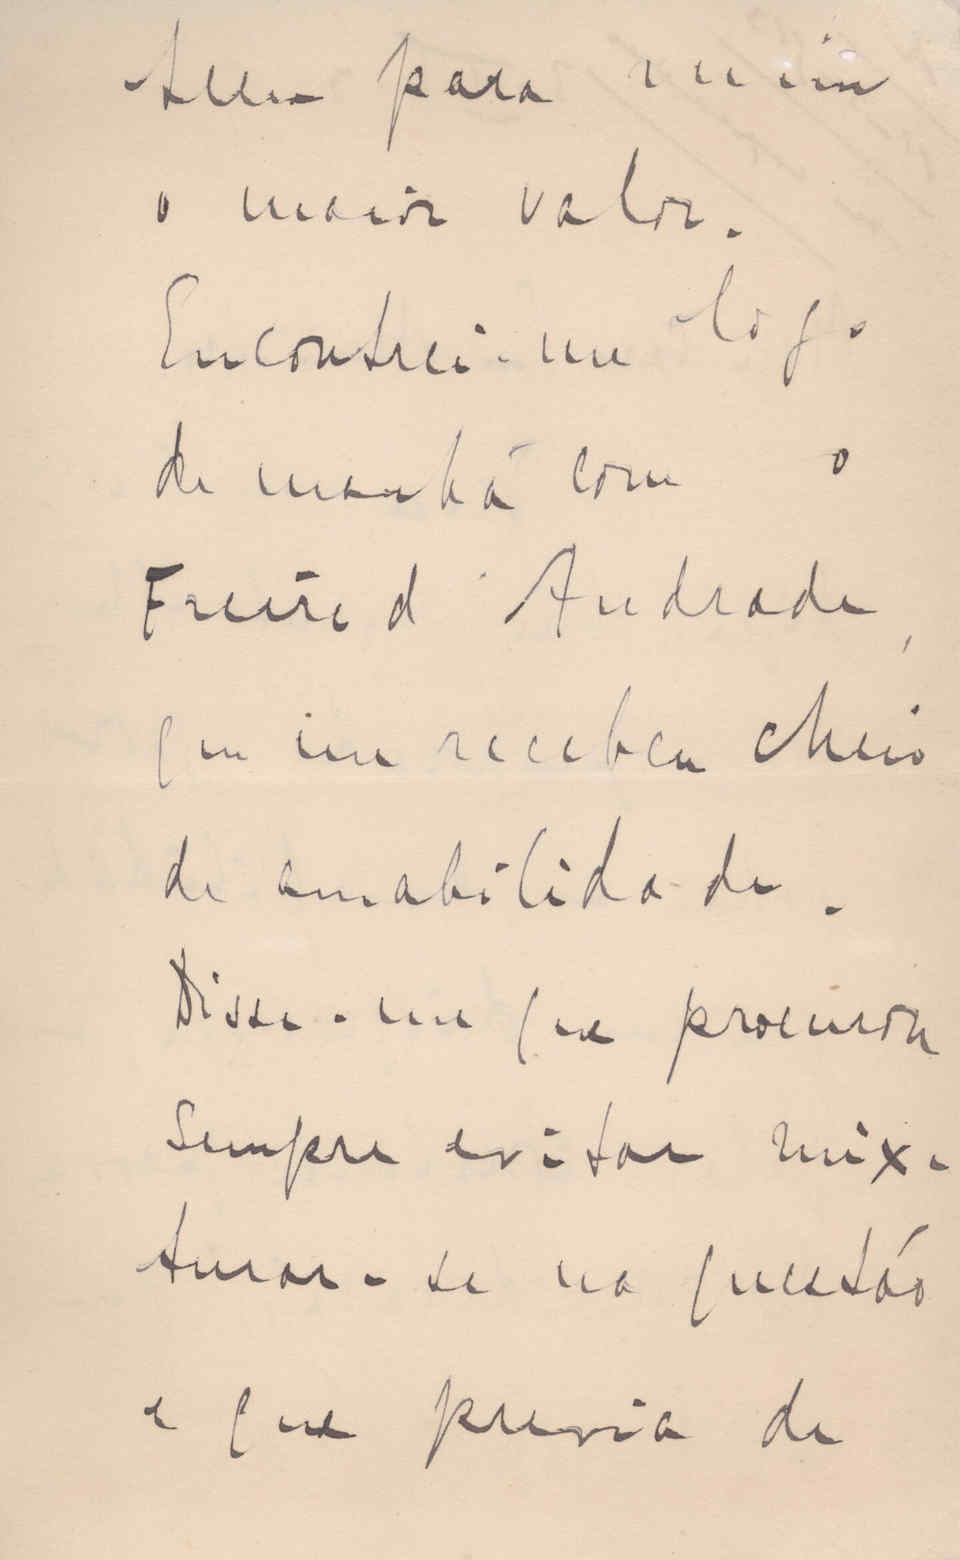 tem para mim
o maior valor.
Encontrei-me logo
de manhã com o
Freire d'Andrade,
que me recebeu cheio
de amabilidade.
Disse-me que procurou
sempre evitar mix-
turar-se na questão
e que previa de